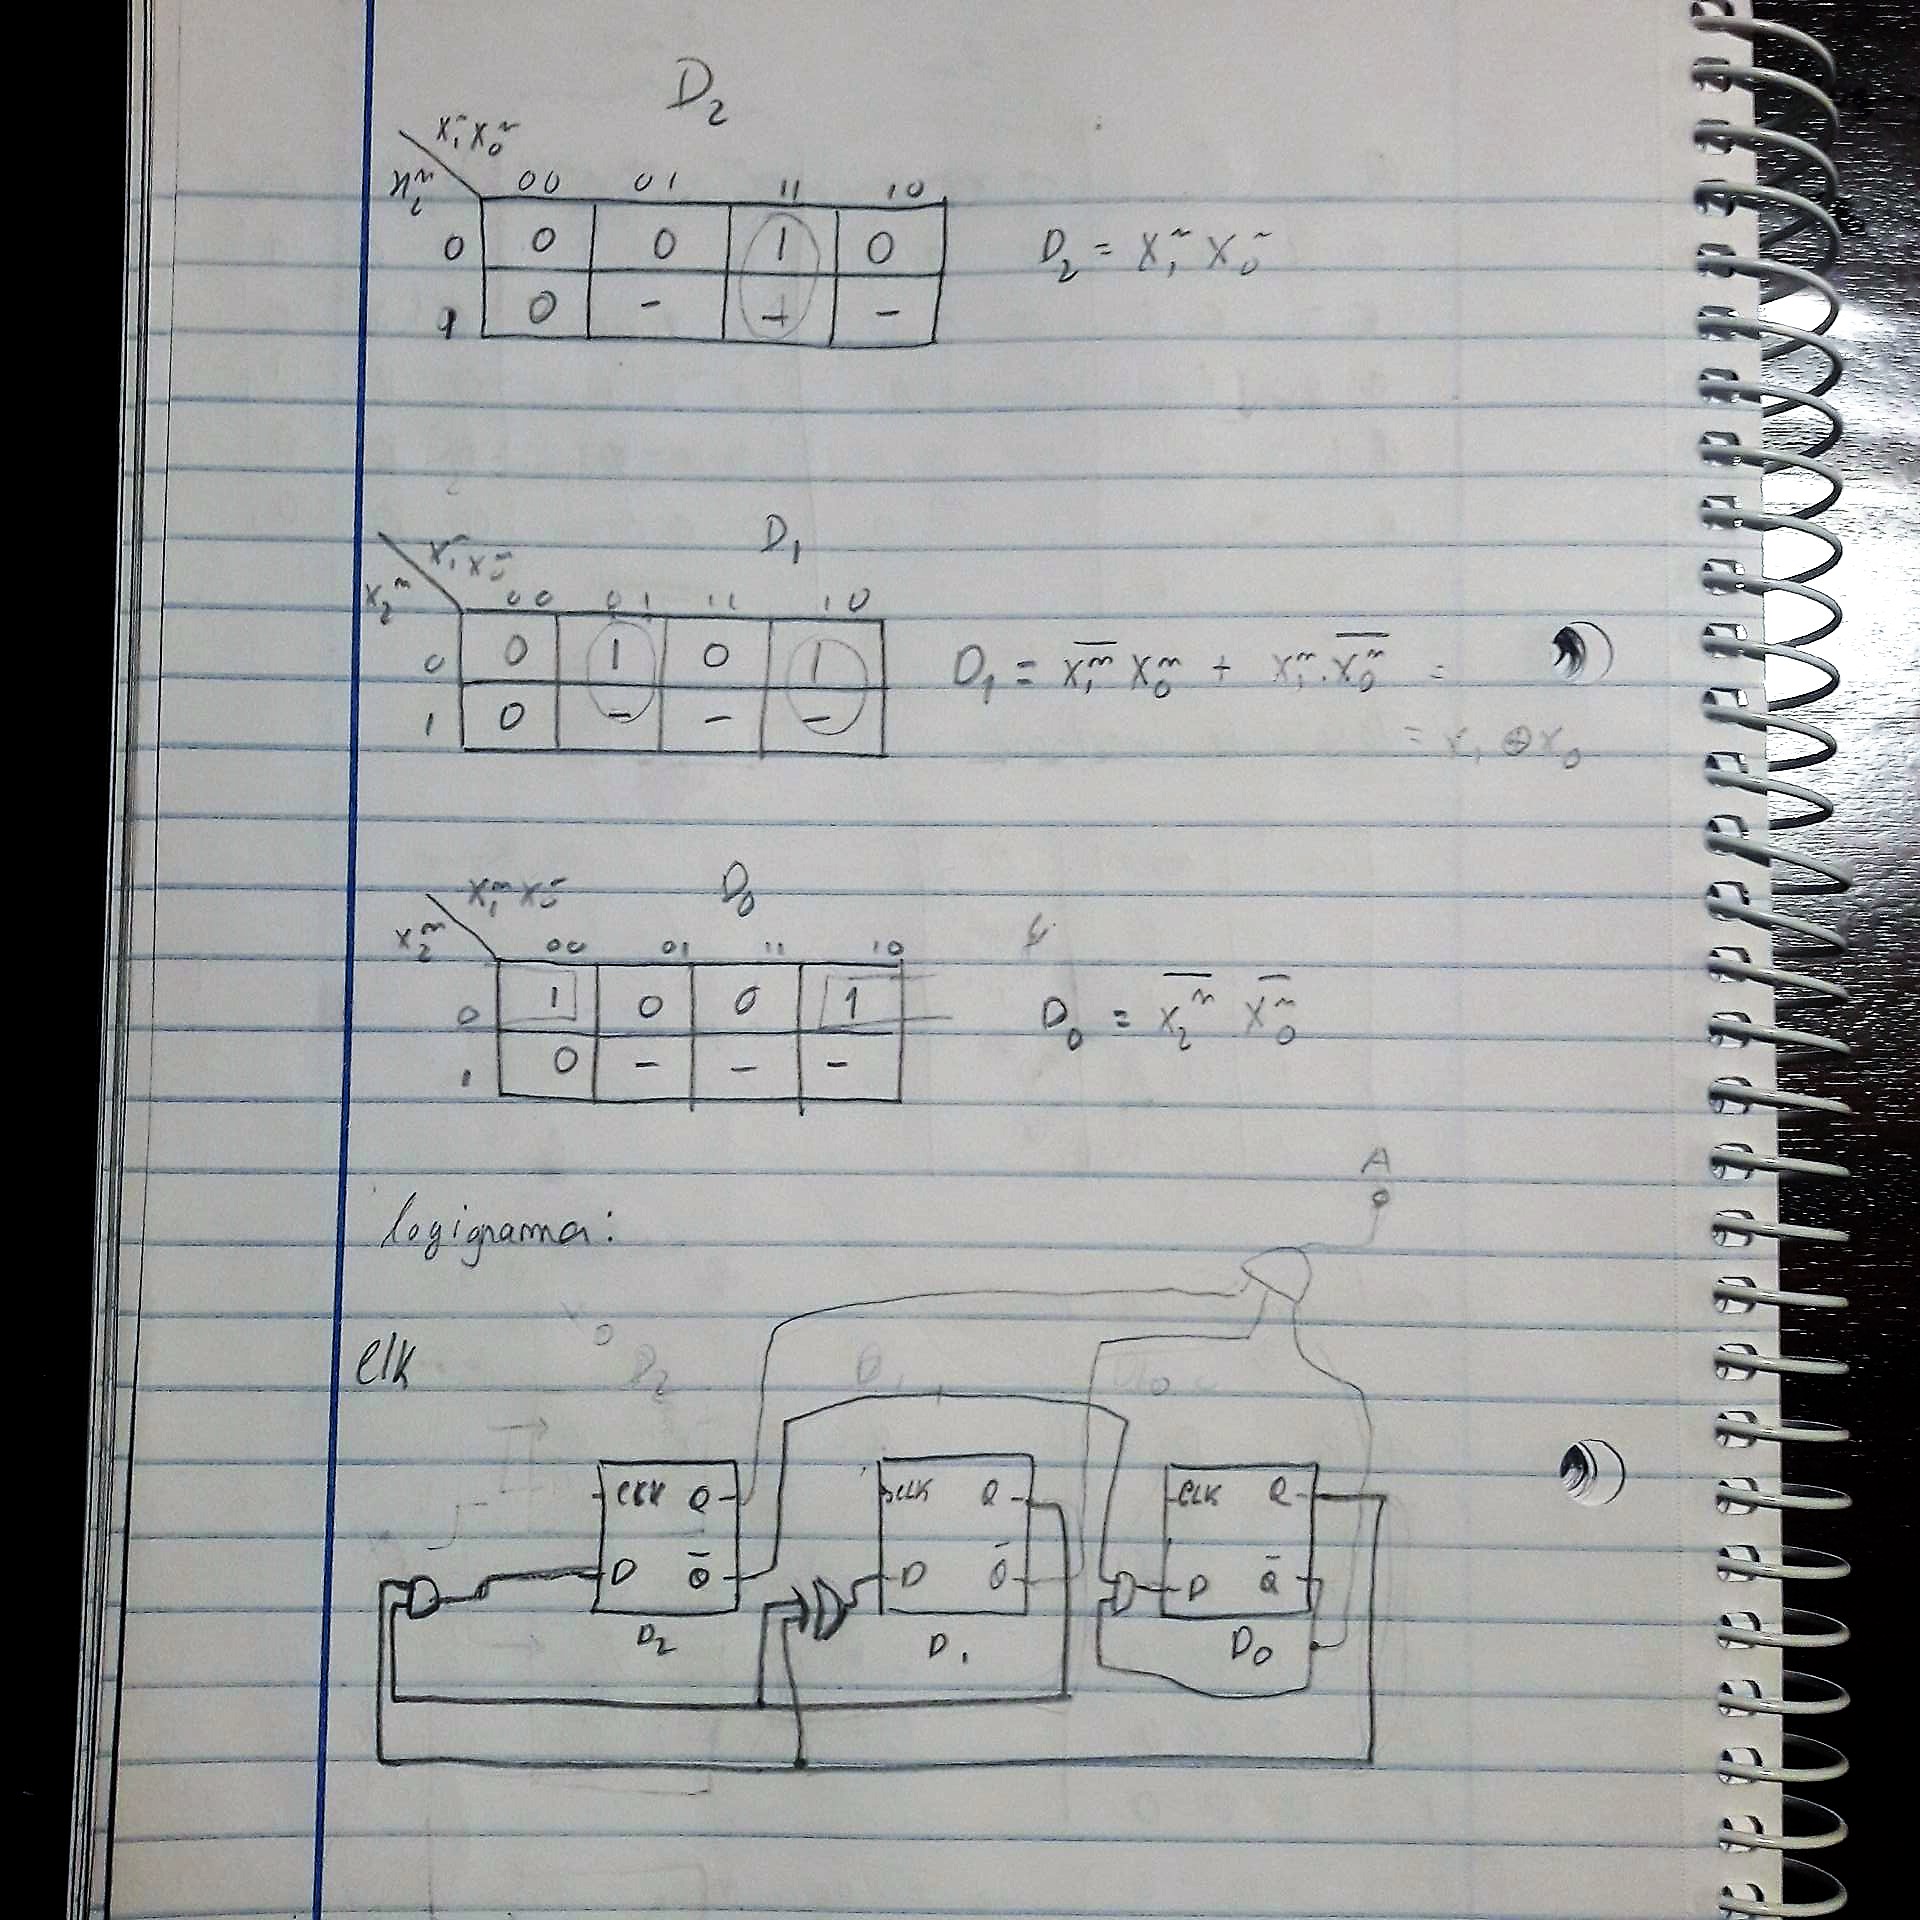 D₂
X₁ⁿ X₀ⁿ
X₂ⁿ 00 01 11 10
0 0 0 1 0
1 0 - - -
D₂ = X₁ⁿ X₀ⁿ
D₁
X₁ⁿ X₀ⁿ
X₂ⁿ 00 01 11 10
0 0 1 0 1
1 0 - - -
D₁ = X̅₁ⁿ X₀ⁿ + X₁ⁿ . X̅₀ⁿ =
= X₁ ⊕ X₀
D₀
X₁ⁿ X₀ⁿ
X₂ⁿ 00 01 11 10
0 1 0 0 1
1 0 - - -
D₀ = X̅₂ⁿ X̅₀ⁿ
A
logigrama:
Clk
CLK Q CLK Q CLK Q
D Q̅ D Q̅ D Q̅
D₂ D₁ D₀